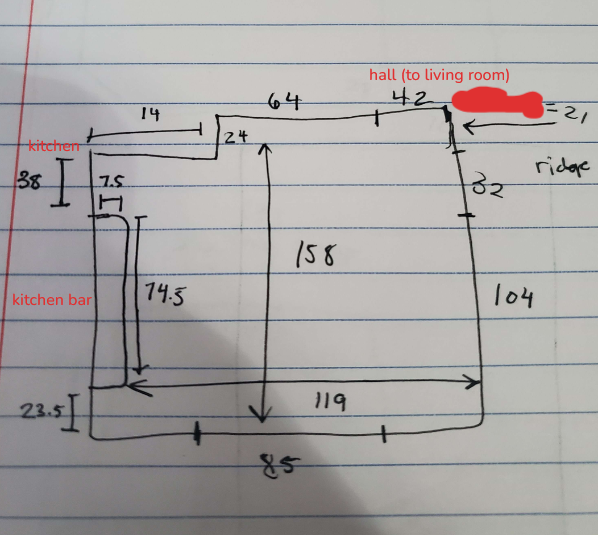 hall (to living room)
64
42
= 2,
14
24
kitchen
ridge
38
7.5
32
158
74.5
104
kitchen bar
119
23.5
85